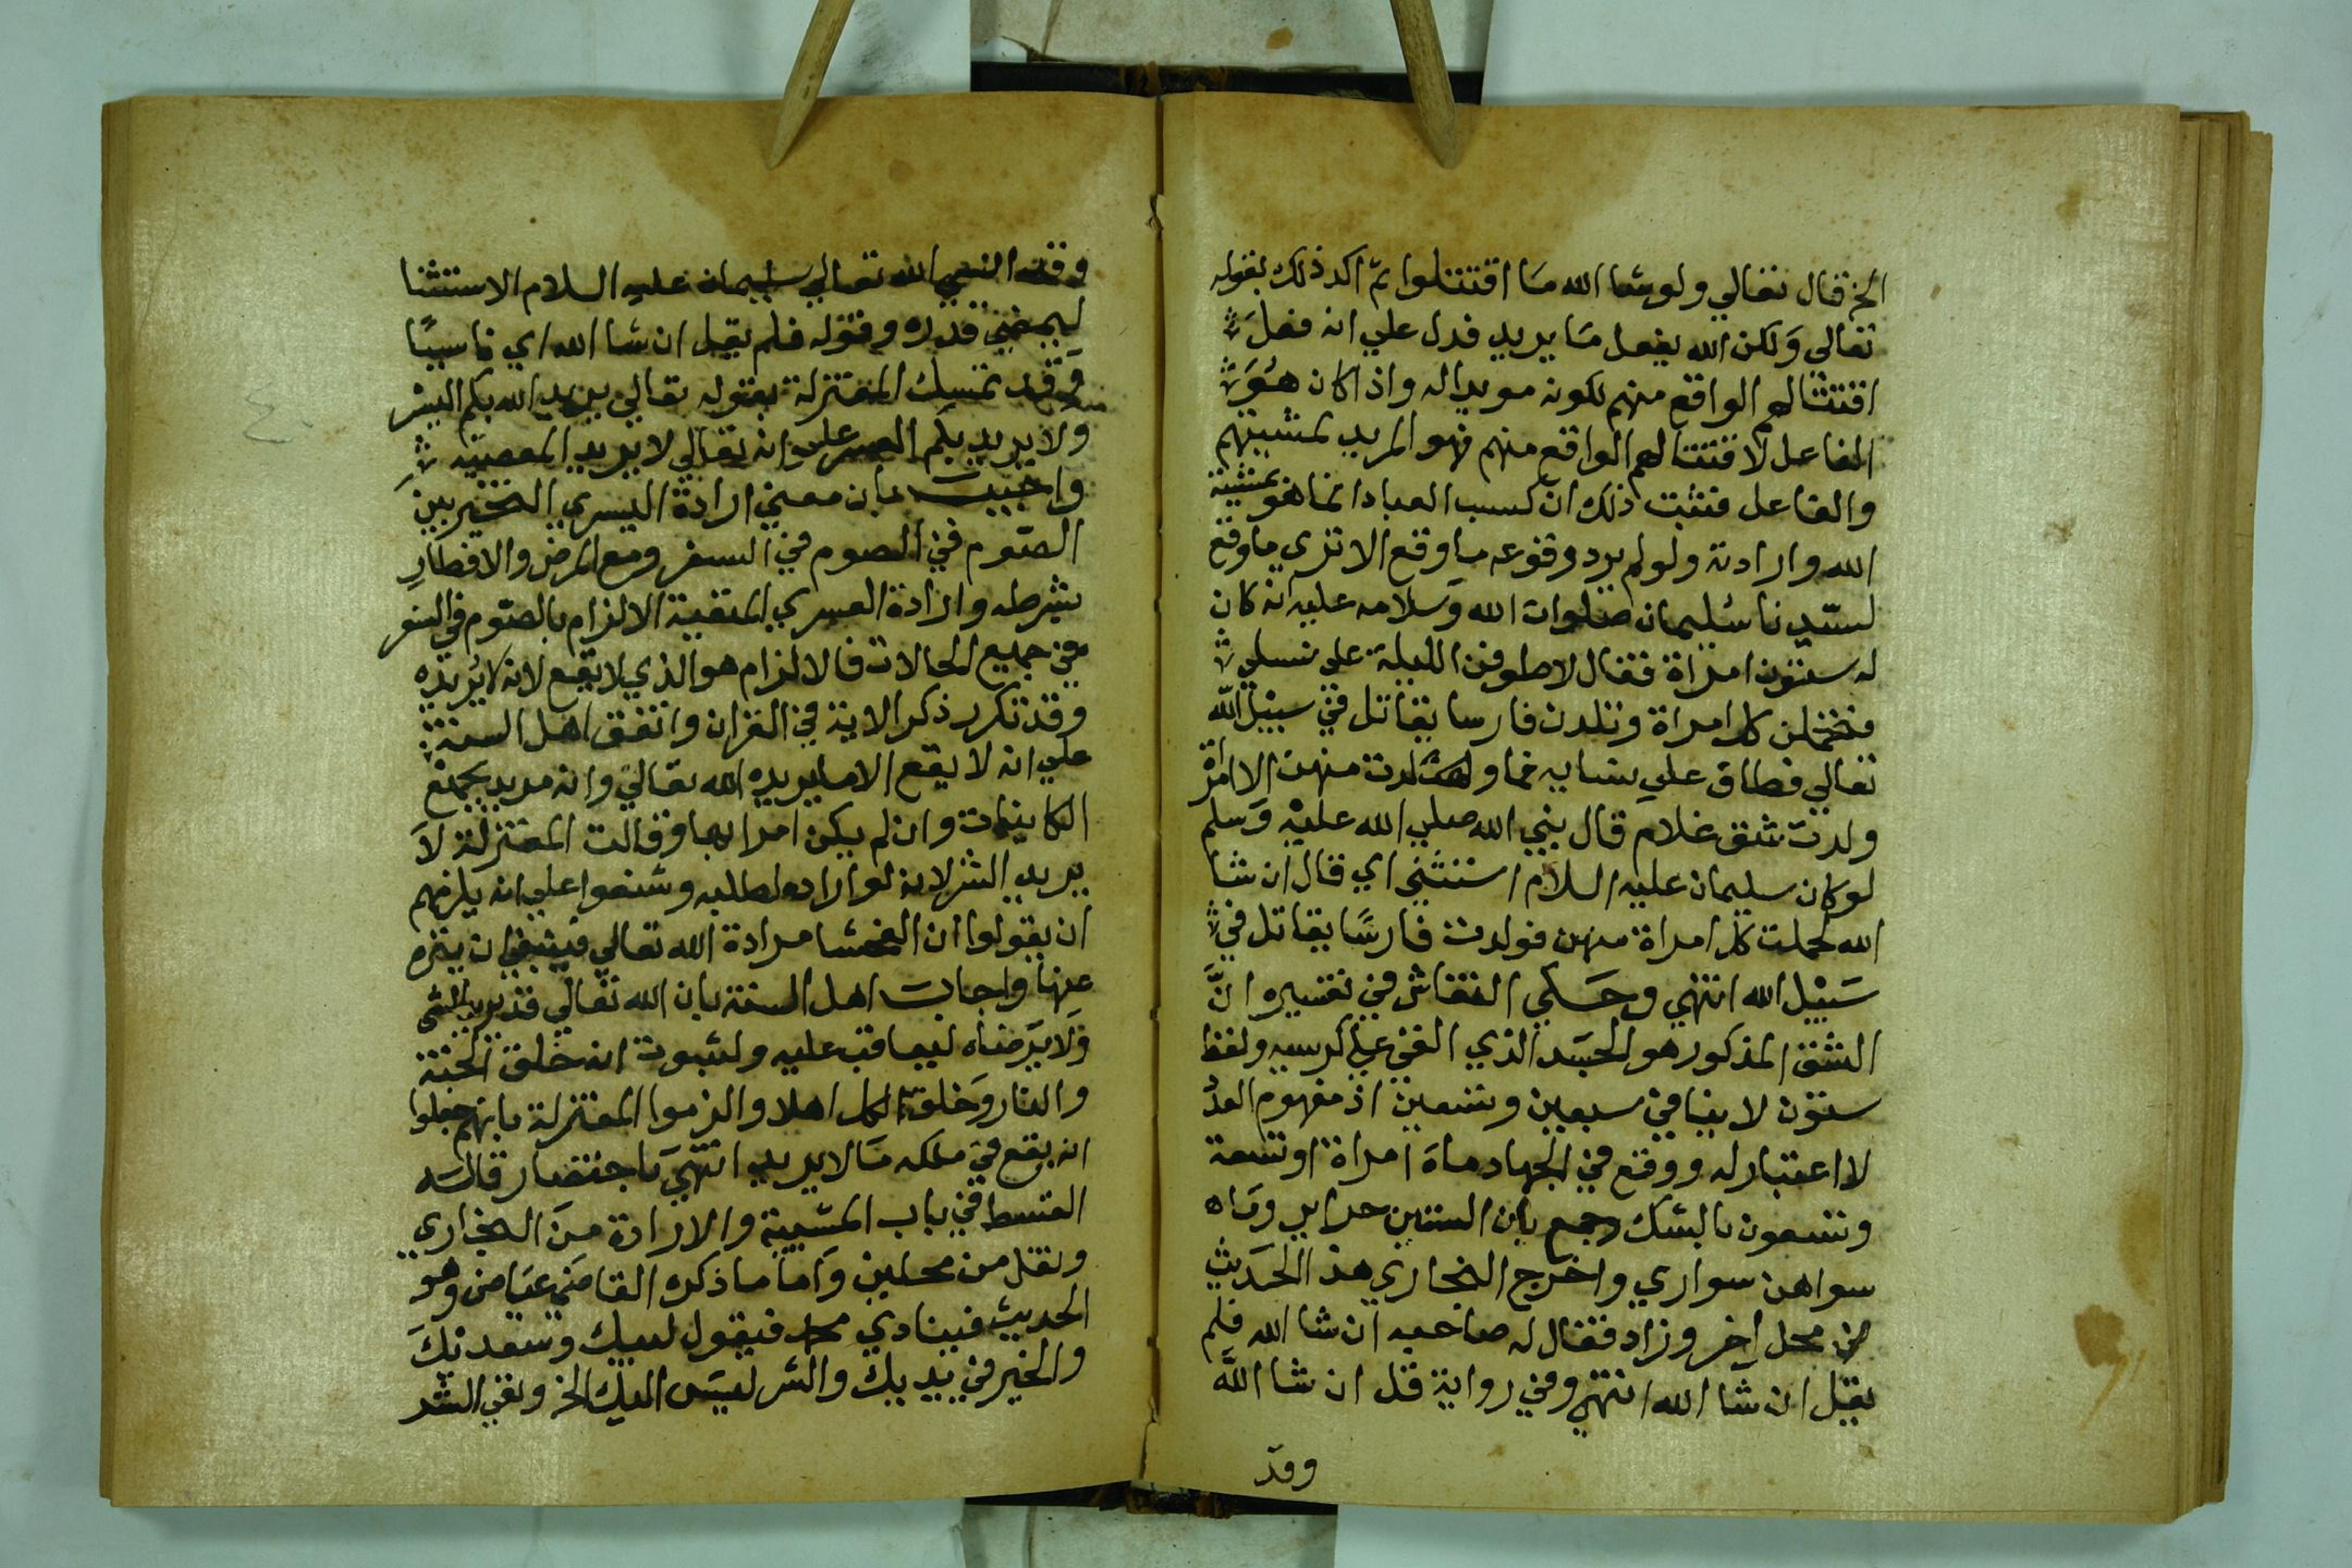 الخ فقال تعالي ولو شا الله ما اقتتلوا ثم اكد ذلك بقوله
تعالي ولكن الله يفعل ما يريد فدل علي انه فعل
اقتتالهم الواقع منهم لكونه مريدا له واذا كان هو
الفاعل لاقتتالهم الواقع منهم فهو المريد لمشيتهم
والفاعل فثبت ذلك ان كسب العباد انما هو بمشية
الله وارادته ولو لم يرد وقوعه ما وقع الا تري ما وقع
لسيدنا سليمان صلوات الله وسلامه عليه انه كان
له ستون امراة فقال لاطوفن الليلة علي نساي
فتحملن كل امراة وتلدن فارسا يقاتل في سبيل الله
تعالي فطاف علي نسايه فما ولدت منهن الا امراة
ولدت شق غلام قال نبي الله صلي الله عليه وسلم
لو كان سليمان عليه السلام استثني اي قال ان شا
الله لحملت كل امراة منهن فولدت فارسا يقاتل في
سبيل الله انتهي وحكي النقاش في تفسيره ان
الشق المذكور هو الجسد الذي القي علي كرسيه ولفظ
ستون لا ينافي سبعين وتسعين اذ مفهوم العدد
لا اعتبار له ووقع في الجهاد ماة امراة او تسعة
وتسعون بالشك وجمع بان الستين حراير وماه
سواهن سواري واخرج البخاري هذا الحديث
في محل اخر وزاد فقال له صاحبه ان شا الله فلم
يقل ان شا الله انتهي وفي رواية قل ان شا الله
وقد
وقد انسي الله تعالي سليمان عليه السلام الاستثنا
ليمضي قدره وقوله فلم يقل ان شا الله اي ناسيا
وقد تمسك المعتزلة بقوله تعالي يريد الله بكم اليسر
ولا يريد بكم العسر علي انه تعالي لا يريد المعصية
واجيب بان معني ارادة اليسري التخيير بين
الصوم في الصوم في السفر ومع المرض والافطار
بشرطه وارادة العسري المنفية الالزام بالصوم في السفر
في جميع الحالات فالالزام هو الذي لا يقع لانه لا يريده
وقد تكرر ذكر الاية في القران واتفق اهل السنة
علي انه لا يقع الا ما يريده الله تعالي وانه مريد بجميع
الكاينات وان لم يكن امرا بها وقالت المعتزلة لا
يريد الشر لانه لو اراده لطلبه وشنعوا علي انه يلزمهم
ان يقولوا ان الفحشا مرادة الله تعالي فينبغي ان ينزه
عنها واجاب اهل السنة بان الله تعالي قد يريد الشي
ولا يرضاه ليعاقب عليه ولثبوت انه خلق الجنة
والنار وخلق لكل اهلا والزموا المعتزلة بانهم جعلوا
انه يقع في ملكه ما لا يريد انتهي باختصار قاله
القسط في باب المشيية والارادة من البخاري
ونقل من محلين واما ما ذكره القاضي عياض وهو
الحديث فينادي محمد فيقول لبيك وسعديك
والخير في يديك والشر ليس اليك الخ ونفي الشر